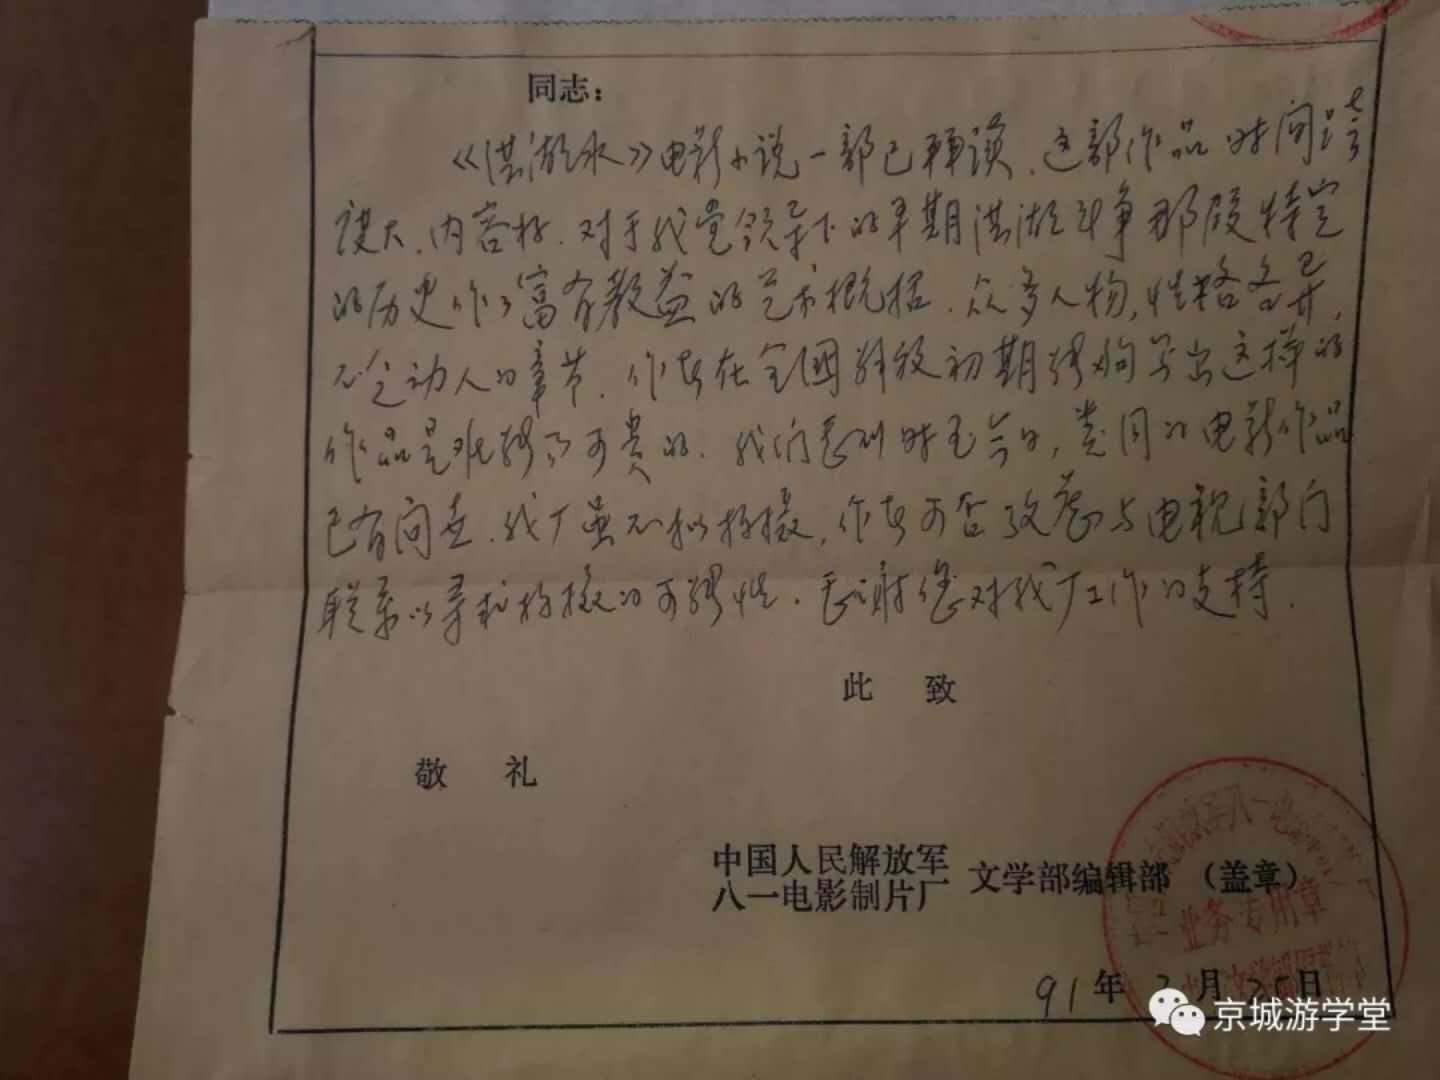 同志：
《洪湖水》电影小说一部已拜读.这部作品时间跨
度大.内容好.对于我党领导下的早期洪湖斗争那段特定
的历史作了富有教益的艺术概括.众多人物,性格各异,
不乏动人的章节.作者在全国解放初期能够写出这样的
作品是难能可贵的.我们感到时至今日,类同的电影作品
已有问世.我厂虽不拟拍摄,作者可否改意与电视部门
联系以寻求拍摄的可能性.感谢您对我厂工作的支持.
此 致
敬 礼
中国人民解放军
八一电影制片厂 文学部编辑部 （盖章）
业务专用章
91年 月 日
京城游学堂